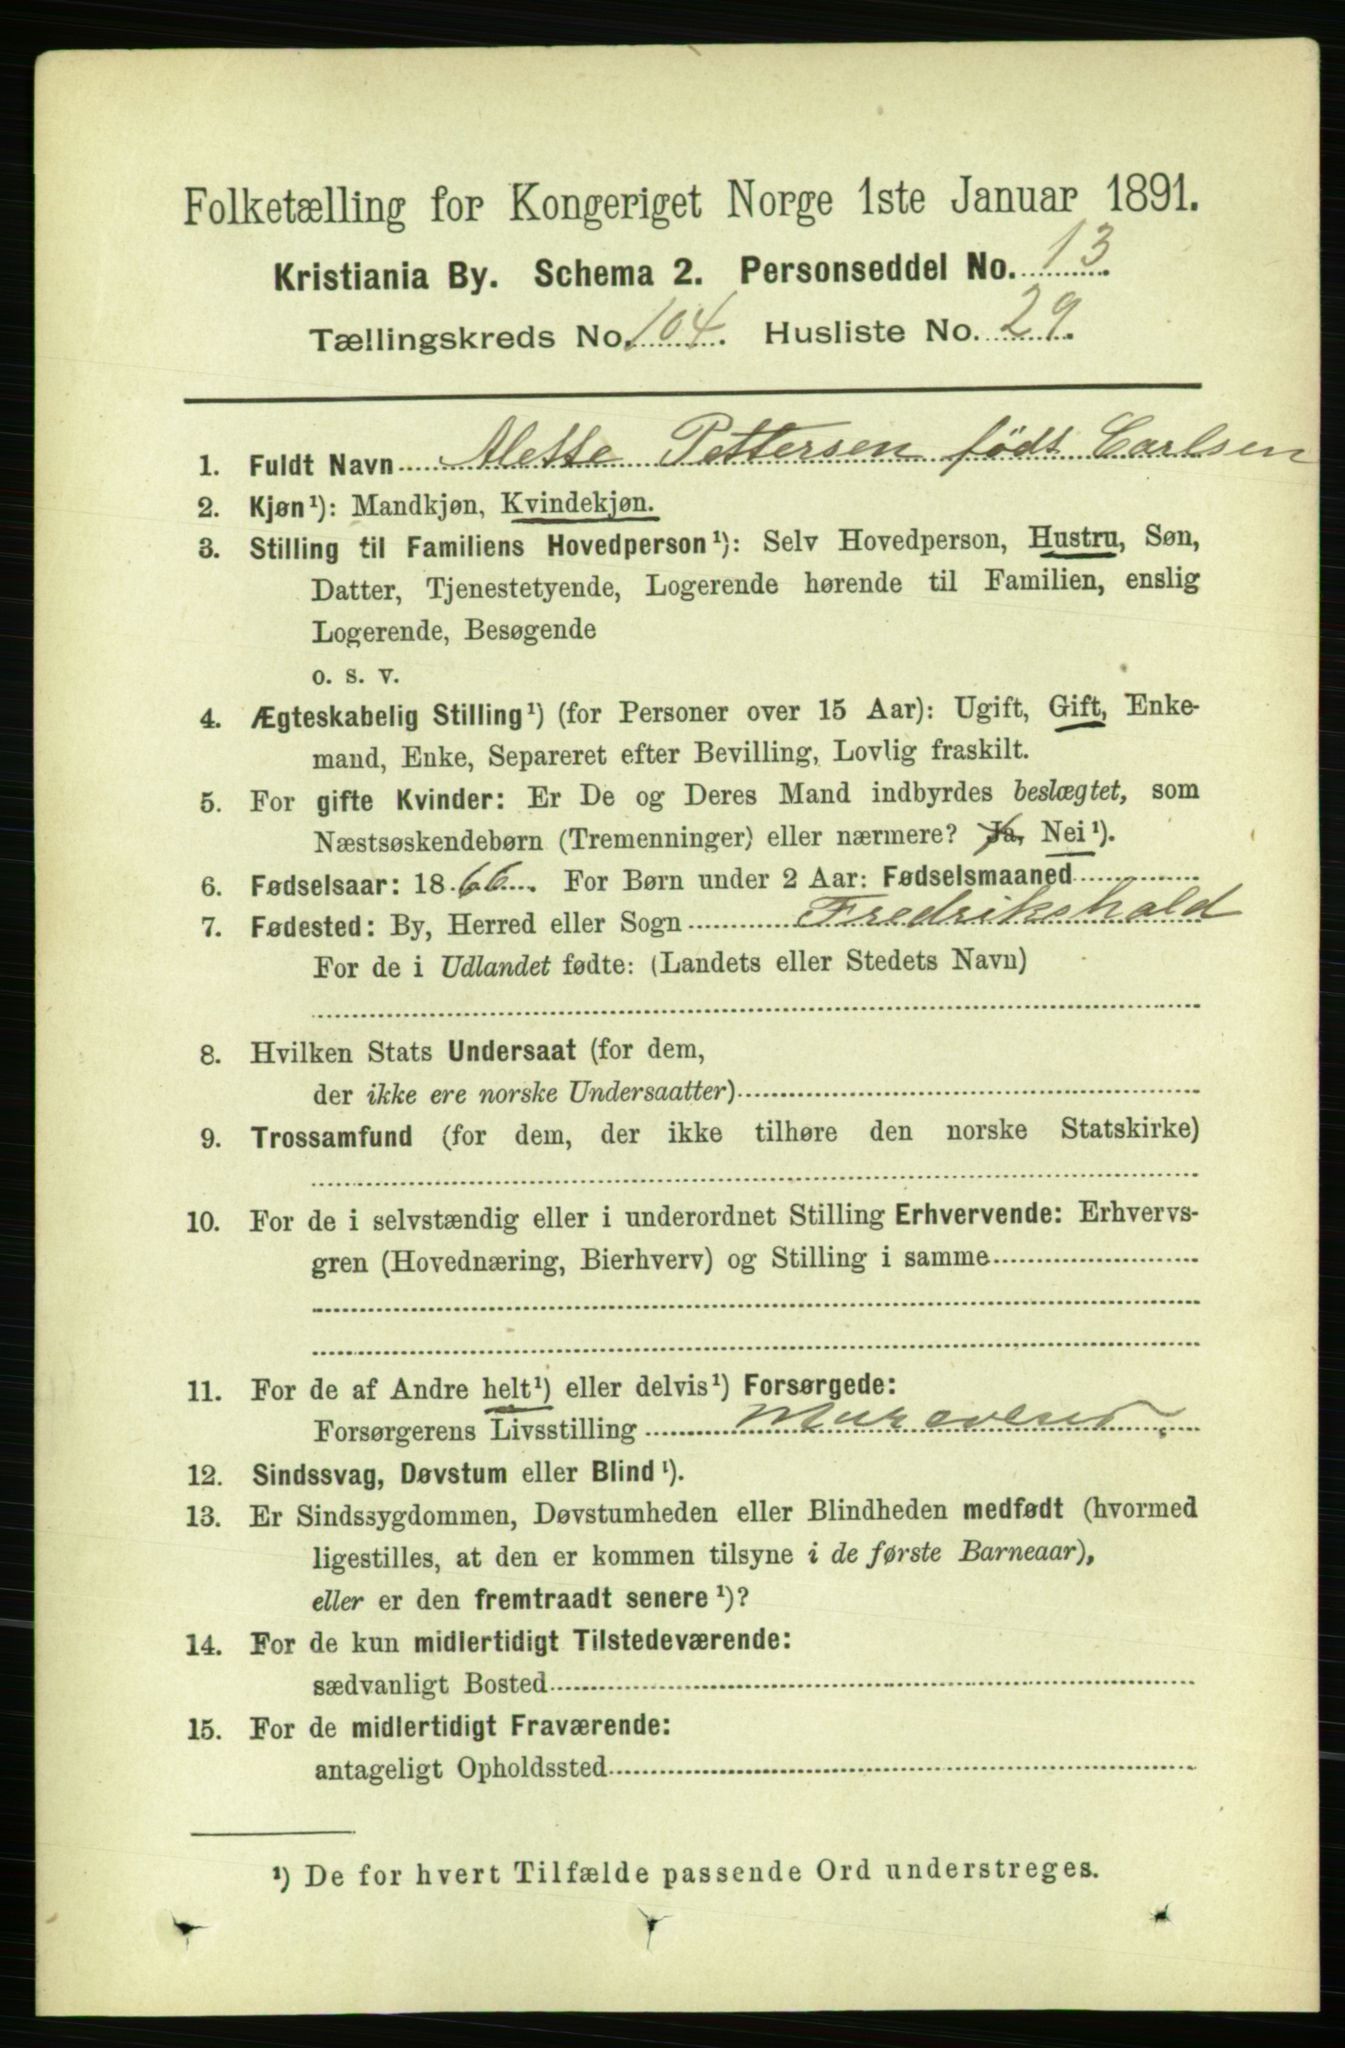 Folketælling for Kongeriget Norge 1ste Januar 1891.
Kristiania By. Schema 2. Personseddel No. 13
Tællingskreds No. 104. Husliste No. 29.
1. Fuldt Navn Mette Pettersen födt Carlsen
2. Kjøn¹): Mandkjøn, Kvindekjøn.
3. Stilling til Familiens Hovedperson¹): Selv Hovedperson, Hustru, Søn,
Datter, Tjenestetyende, Logerende hørende til Familien, enslig
Logerende, Besøgende
o. s. v.
4. Ægteskabelig Stilling¹) (for Personer over 15 Aar): Ugift, Gift, Enke-
mand, Enke, Separeret efter Bevilling, Lovlig fraskilt.
5. For gifte Kvinder: Er De og Deres Mand indbyrdes beslægtet, som
Næstsøskendebørn (Tremenninger) eller nærmere? Ja, Nei¹).
6. Fødselsaar: 1866. For Børn under 2 Aar: Fødselsmaaned
7. Fødested: By, Herred eller Sogn Fredrikshald
For de i Udlandet fødte: (Landets eller Stedets Navn)
8. Hvilken Stats Undersaat (for dem,
der ikke ere norske Undersaatter)
9. Trossamfund (for dem, der ikke tilhøre den norske Statskirke)
10. For de i selvstændig eller i underordnet Stilling Erhvervende: Erhvervs-
gren (Hovednæring, Bierhverv) og Stilling i samme
11. For de af Andre helt¹) eller delvis¹) Forsørgede:
Forsørgerens Livsstilling
12. Sindssvag, Døvstum eller Blind¹).
13. Er Sindssygdommen, Døvstumheden eller Blindheden medfødt (hvormed
ligestilles, at den er kommen tilsyne i de første Barneaar),
eller er den fremtraadt senere¹)?
14. For de kun midlertidigt Tilstedeværende:
sædvanligt Bosted
15. For de midlertidigt Fraværende:
antageligt Opholdssted
¹) De for hvert Tilfælde passende Ord understreges.